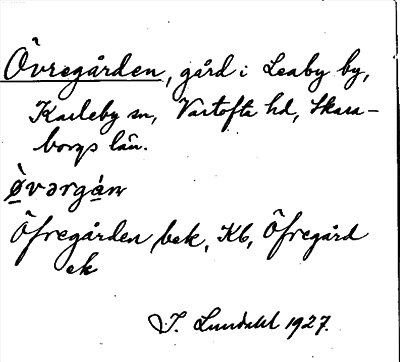 Övregården, gård i Leaby by,
Karleby sn, Vartofta hd, Skara-
borgs län.
ø̀vərgán
Öfregården bek, Kb, Öfregård
ek
I. Lundahl 1927.